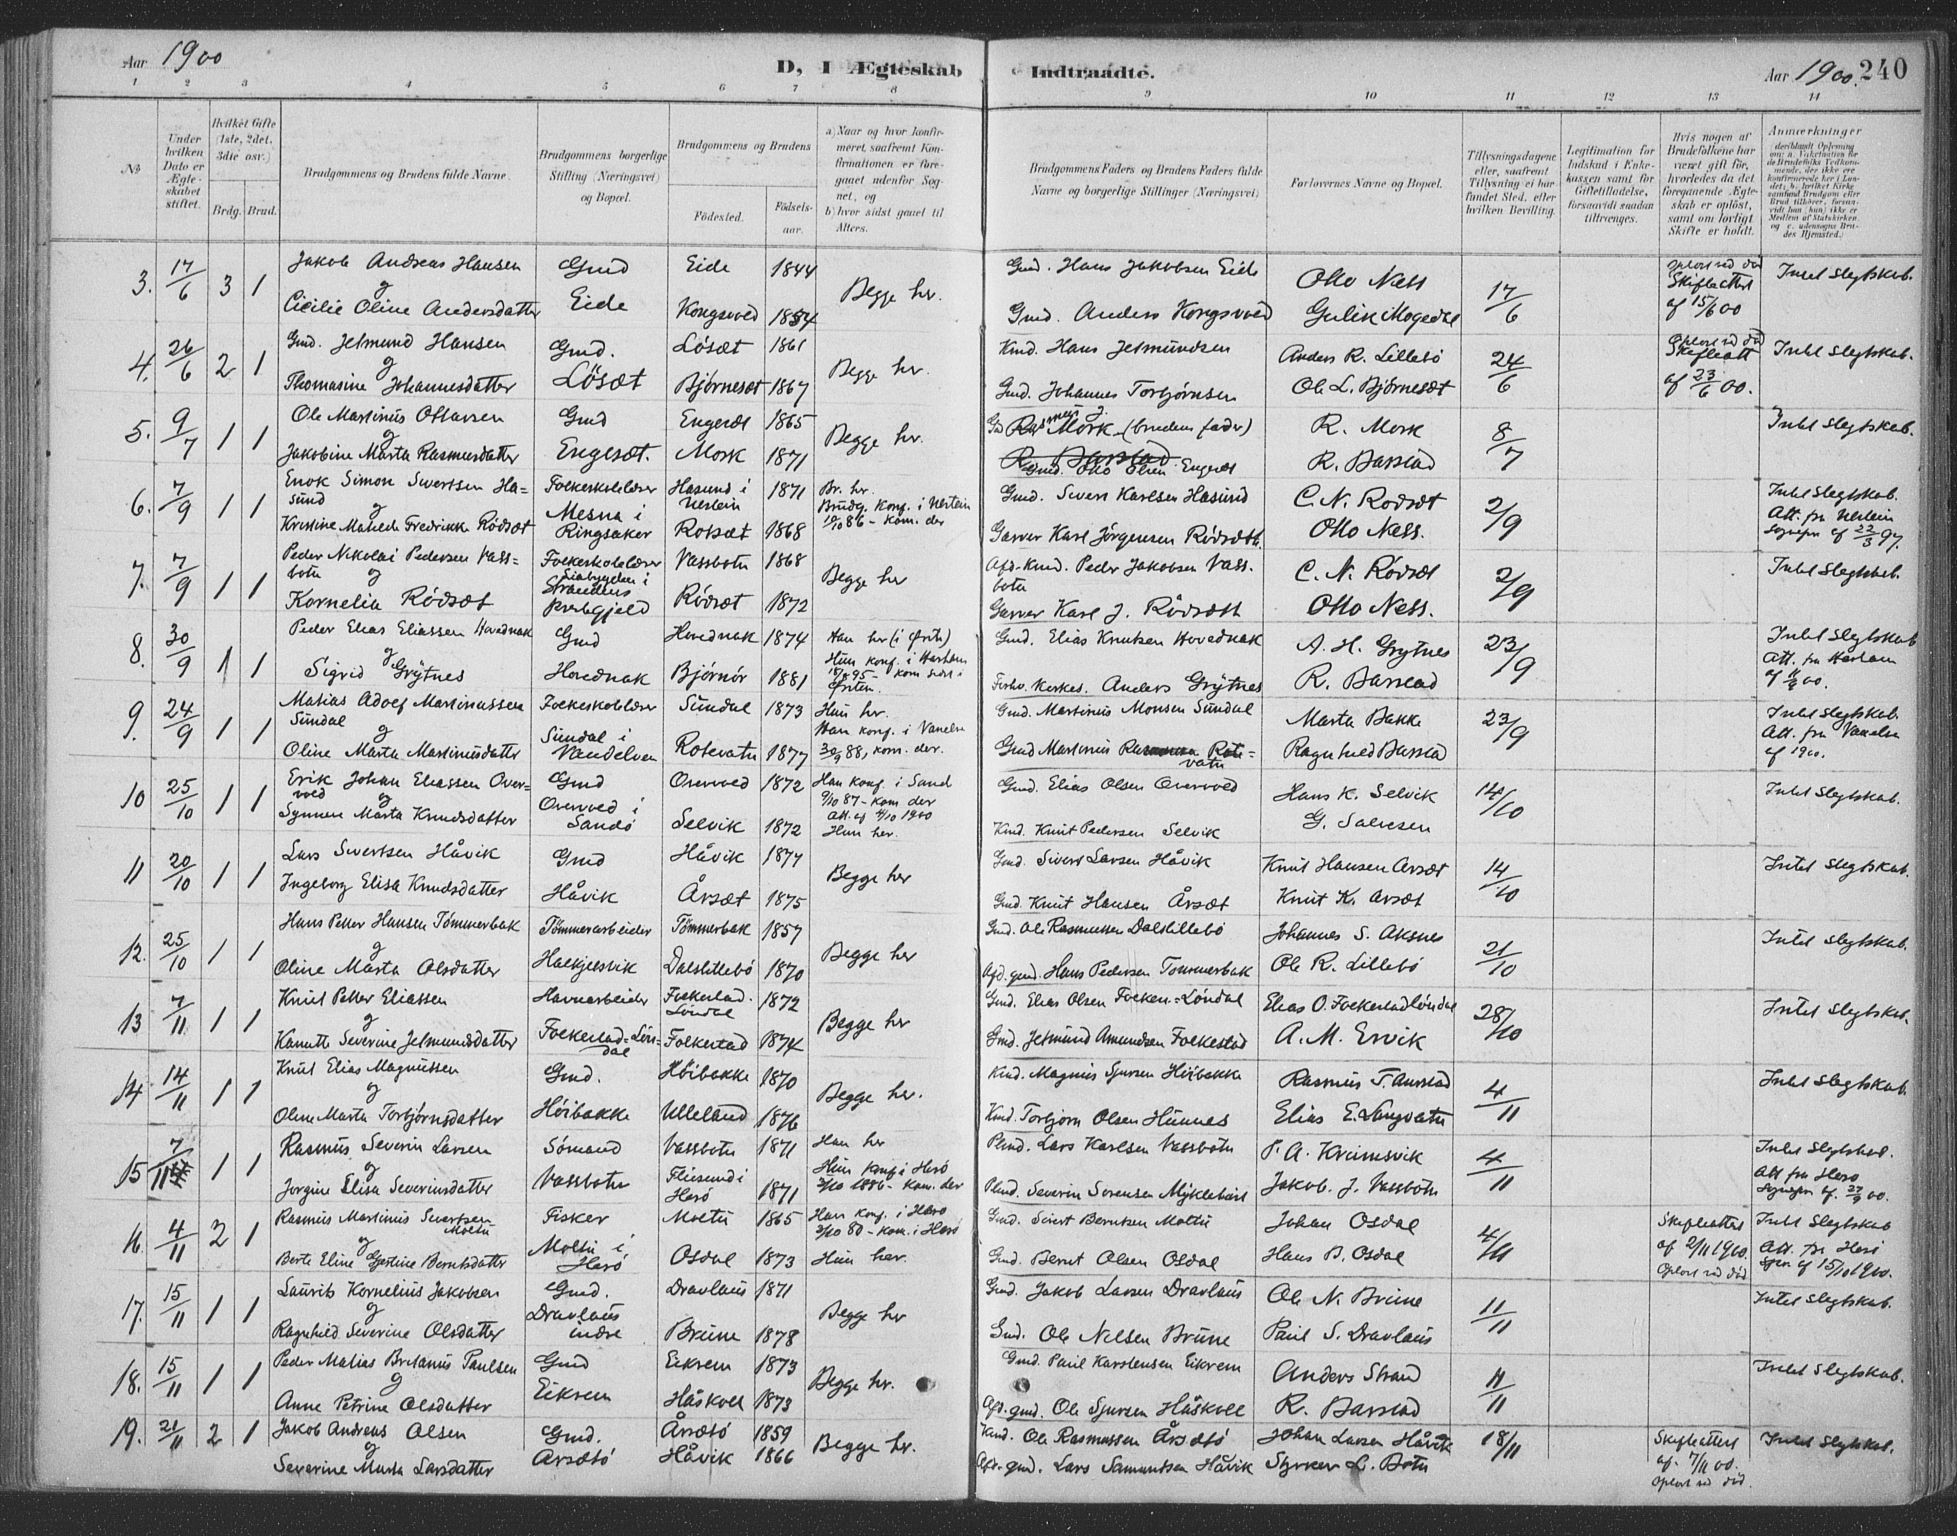 Aar 1900
D, I Ægteskab Indtraadte.
Aar 1900. 240
1 2 3 4 5 6 7 8 9 10 11 12 13 14
No
Under hvilken Dato er Ægteskabet stiftet.
Hvilket Gifte (1ste, 2det, 3die osv.)
Brdg. Brud.
Brudgommens og Brudens fulde Navne.
Brudgommens borgerlige Stilling (Næringsvei) og Bopæl.
Brudgommens og Brudens
Fødested. Fødselsaar.
a) Naar og hvor konfirmeret, saafremt Konfirmationen er foregaaet udenfor Sognet, og
b) hvor sidst gaaet til Alters.
Brudgommens Faders og Brudens Faders fulde Navne og borgerlige Stillinger (Næringsvei)
Forlovernes Navne og Bopæl.
Tillysningsdagene eller, saafremt Tillysning ei har fundet Sted, efter hvilken Bevilling.
Legitimation for Indskud i Enkekassen samt for Giftetilladelse, forsaavidt saadan tiltrænges.
Hvis nogen af Brudefolkene har været gift før, hvorledes da det foregaaende Ægteskab er opløst, samt om lovligt Skifte er holdt.
Anmærkninger
3. 17/6 3 1 Jakob Andreas Hansen Gmd Eide 1844 Gmd. Hans Jakobsen Eide Otto Ness 17/6 Skifteattest af 15/6 00 Intet Slegtskab.
og Begge her.
Cicilie Oline Andersdatter Eide Kongsvod 1854 Gmd. Anders Kongsvod
4. 26/6 2 1 Gmd. Jetmund Hansen Gmd. Løsæt 1861 Kmd. Hans Jetmundsen Anders R. Lillebø 24/6 af 23/6 00. Intet Slegtskab.
og Begge her.
Thomasine Johannesdatter Løsæt Bjørnesæt 1867 Gmd. Johannes Torbjørnsen Ole L. Bjørnesæt
5. 9/7 1 1 Ole Martinus Ottarsen Gmd Engesæt 1865 Mork (brudens fader) R. Mork 8/7 Intet Slegtskab.
og Begge her.
Jakobine Marta Rasmusdatter Engesæt. Mork 1871 Gmd. Otto Olsen Engesæt R. Barstad
6. 7/9 1 1 Enok Simon Sivertsen Hasund Folkeskolelærer Hasund i Ulstein 1871 Br. her. Brudg. Konf. i Ulstein Gmd. Sivert Karlsen Hasund C. N. Rødsæt 2/9 Intet Slegtskab. Att. fra Ulstein
og Mesna i 10/10 86 - kom. der
Kristine Matilde Fredrikke Rødsæt Ringsaker Rotsæt 1868 Garver Karl Jørgensen Rødsæth. Otto Ness. Sognepr. af 22/3 97.
7. 7/9 1 1 Peder Nikolai Pedersen Vassbotn Folkeskolelærer Vassbotn 1868 Afd. Kmd. Peder Jakobsen Vassbotn C. N. Rødsæt 2/9 Intet Slegtskab.
og i Strandens Begge her
Kornelia Rødsæt prestegjeld Rødsæt 1872 Garver Karl J. Rødsæth Otto Ness.
8. 30/9 1 1 Peder Elias Eliassen Hovednak Gmd Hovednak 1874 Han her (i Ørsta) Gmd. Elias Knutsen Hovednak A. H. Grytnes 23/9 Intet Slegtskab
og Hun konf. i Harham Att. fra Harham
Sigrid Grytnes Hovednak Bjørnør 1881 Ørsten. Anders Grytnes R. Barstad
9. 24/9 1 1 Matias Adolf Martinussen Sundal Folkeskolelærer Sundal 1873 Hun her. Gmd. Martinus Monsen Sundal Marta Bakke 23/9 Intet Slegtskab.
og Sundal i Han konf. i Vanelven Att. fra Vanelven
Oline Marta Martinusdatter Vandelven Rotevatn 1877 30/9 88, kom. der. Gmd Martinus Rotevatn Ragnhild Barstad af 1900.
10 25/10 1 1 Erik Johan Eliassen Overvod Gmd Overvod 1872 Han konf. i Sand 9/10 87 - kom der Gmd. Elias Olsen Overvod Hans K. Selvik 14/10 Intet Slegtskab.
og Overvod i
Synneve Marta Knudsdatter Sandø Selvik 1872 Hun her. Kmd. Knut Pedersen Selvik G. Salvesen
11 20/10 1 1 Lars Sivertsen Håvik Gmd Håvik 1877 Gmd. Sivert Larsen Håvik Knut Hansen Arsæt 14/10 Intet Slegtskab.
Begge her
Ingeborg Elisa Knudsdatter Håvik Årsæt 1875 Gmd. Knut Hansen Årsæt Knut K. Arsæt
12. 25/10 1 1 Hans Petter Hansen Tømmerbak Tømmerarbeider Tømmerbak 1857 Gmd. Ole Rasmussen Dalslillebø Johannes S. Aksnes 21/10 Intet Slegtskab.
og Begge her
Oline Marta Olsdatter Haekjelsvik Dalslillebø 1870 Afd. gmd. Hans Pedersen Tømmerbak Ole R. Lillebø
13 7/11 1 1 Knut Petter Eliassen Havnarbeider Folkestad-Løndal 1872 Gmd. Elias Olsen Folkest-Løndal Elias O. Folkestadløndal 28/10 Intet Slegtskab.
og Begge her
Kanutte Severine Jetmundsdatter Folkestad-Løndal Folkestad 1874 Gmd. Jetmund Amundsen Folkestad A. M. Ervik
14 14/11 1 1 Knut Elias Magnussen Gmd. Høibakke 1870 Kmd. Magnus Sjursen Høibakke Rasmus T. Aurstad 4/11 Intet Slegtskab.
og Begge her.
Oline Marta Torbjørnsdatter Høibakke Ulleland 1876 Kmd. Torbjørn Olsen Hunnes Elias E. Langvatn
15 7/11 1 1 Rasmus Severin Larsen Sømand Vassbotn 1871 Han her Pmd. Lars Karlsen Vassbotn P. A. Kvamsvik 4/11 Intet Slegtskab.
og Hun konf. i Herø Att fra Herø
Jorgine Elisa Severinsdatter Vassbotn Flusund i Herø 1871 3/10 1886 - kom. der Pmd. Severin Sorensen Myklebust Jakob. J. Vassbotn Sognepr. af 27/9 00.
16. 4/11 2 1 Rasmus Martinus Sivertsen Moltu Fisker Moltu 1865 Han konf. i Herø 3/10 80 - kom. i Herø Gmd. Sivert Berntsen Moltu Johan Osdal 4/11 Skifteattest af 2/11 1900. Opløst ved død Intet Slegtskab
og Moltu i Att. fra Herø
Berte Eline Gjertine Berntsdatter Herø Osdal 1873 Hun her. Gmd. Bernt Olsen Osdal Hans B. Osdal af 15/10 1900.
17. 15/11 1 1 Laurits Kornelius Jakobsen Gmd. Dravlaus 1871 Gmd. Jakob Larsen Dravlaus Ole N. Brune 11/11 Intet Slegtskab.
og Dravlaus Begge her
Ragnhild Severine Olsdatter indre Brune 1878 Gmd. Ole Nilsen Brune Paul S. Dravlaus
18. 15/11 1 1 Peder Matias Britanus Paulsen Gmd Eikrem 1873 Gmd. Paul Karstensen Eikrem Anders Strand 11/11 Intet Slegtskab.
og Begge her.
Anne Petrine Olsdatter Eikrem Håskoll 1873 Afd. gmd. Ole Sjursen Håskoll R. Barstad
19. 21/11 2 1 Jakob Andreas Olsen Gmd. Årsetø 1859 Kmd. Ole Rasmussen Årsetø Johan Larsen Håvik 18/11 Skifteattest af 7/11 00. Opløst ved død. Intet Slegtskab.
og Begge her.
Severine Marta Larsdatter Arsetø Håvik 1866 Afd. gmd. Lars Samundsen Håvik Styrker L. Botn